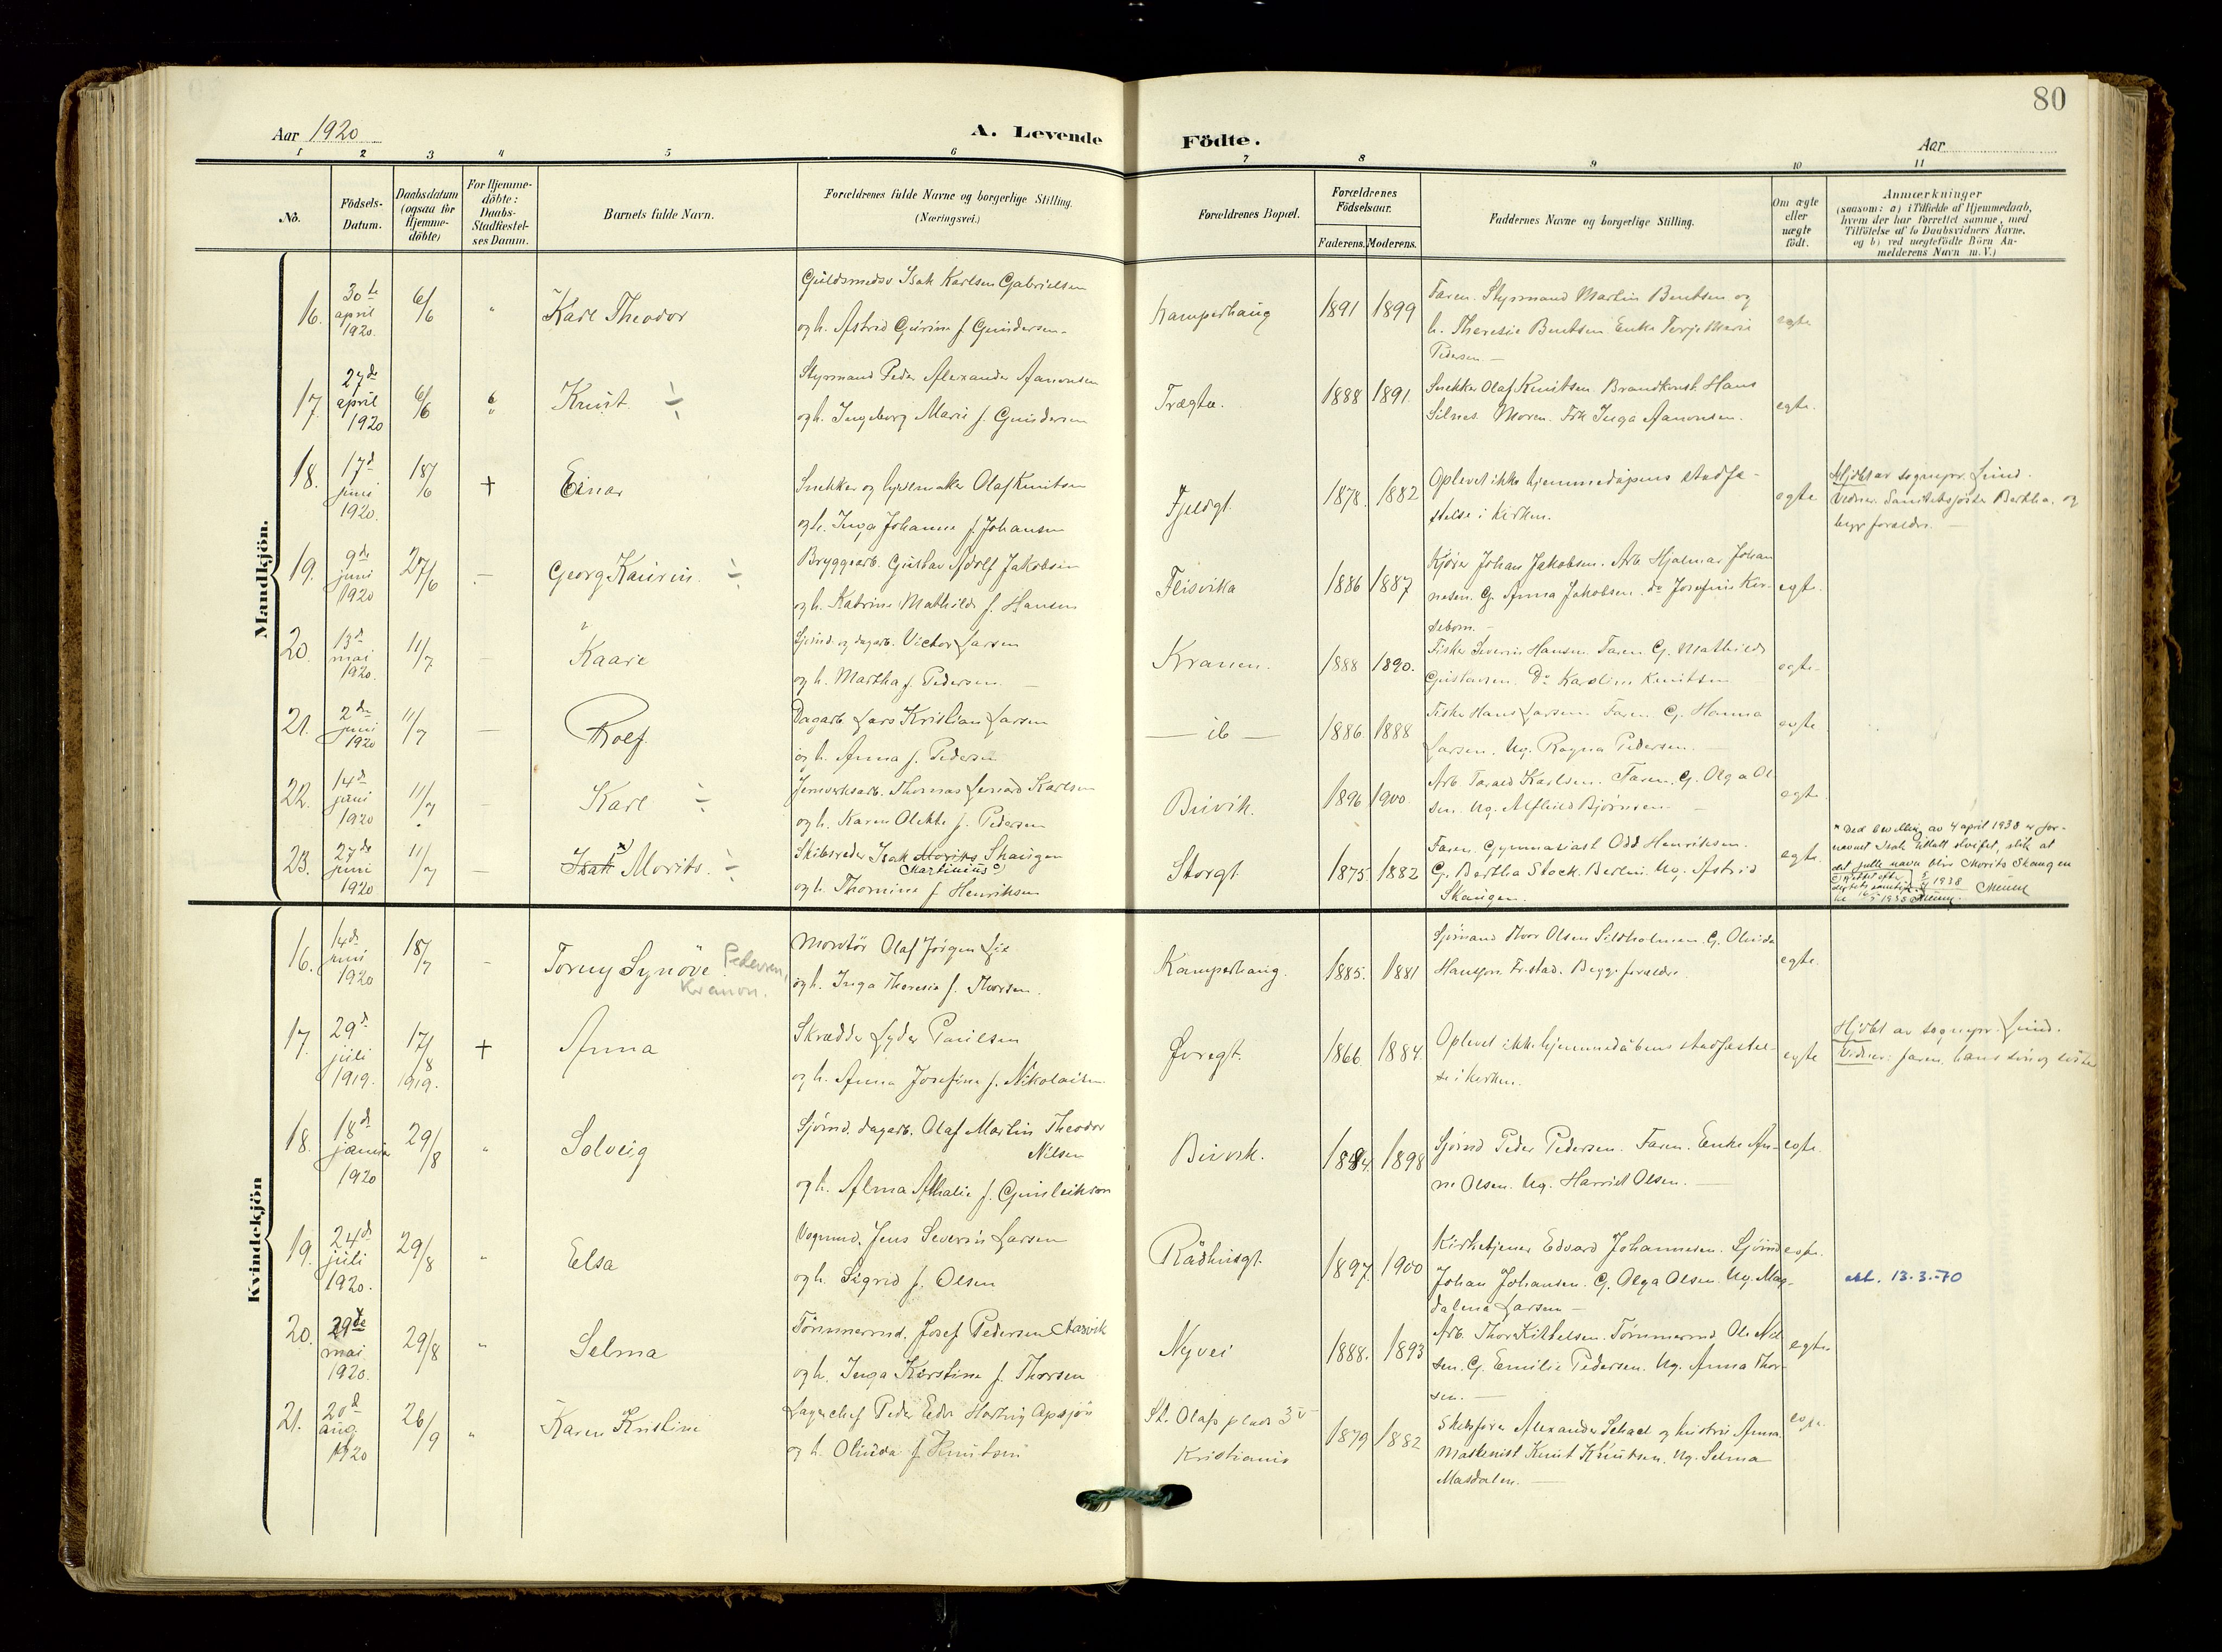 80
Aar 1920
A. Levende Födte.
Aar
1 2 3 4 5 6 7 8 9 10 11
Nö.
Födsels-
Datum.
Daabsdatum
(ogsaa for
Hjemme-
döbte)
For Hjemme-
döbte:
Daabs-
Stadfæstel-
ses Datum.
Barnets fulde Navn.
Forældrenes fulde Navne og borgerlige Stilling.
(Næringsvei.)
Forældrenes Bopæl.
Forældrenes
Födselsaar.
Faderens. Moderens.
Faddernes Navne og borgerlige Stilling.
Om ægte
eller
uægte
födt.
Anmærkninger
(saasom: a) i Tilfælde af Hjemmedaab,
hvem der har forrettet samme, med
Tilföielse af to Daabsvidners Navne.
og b) ved uægtefödte Börn An-
melderens Navn m. V.)
Mandkjön.
16. 30te april 1920. 6/6 Karl Theodor
Guldsmedsv Isak Karlsen Gabrielsen
og h. Astrid Gurine f. Gundersen
Kamperhaug 1891 1899
Faren. Styrmand Martin Bentsen og
h. Theresie Bentsen Enke Terje Marie
Pedersen. egte
17. 27de april 1920 6/6 Knut
Styrmand Peder Alexander Aanonsen
og h. Ingeborg Marie f. Gundersen
Trægta. 1888 1891.
Snekker Olaf Knutsen. Brandkonst. Hans
Silnes. Moren. Frk Inga Aanonsen. egte.
18. 17d juni 1920. 18/6 + Einar
Snekker og hjulmaker Olaf Knutsen
og h. Inga Johanne f. Johansen
Fjeldgt. 1878. 1882
Oplevet ikke hjemmedåpens stadfæ-
stelse i kirken. egte
Hjdøbt av sognepr. Lund.
Vidner. Sanitetssøster Bertha. og
begge forældre.
19. 9de juni 1920 27/6 Georg Kaurin
Bryggearb. Gustav Adolf Jakobsen
og h. Katrine Mathilde f. Hansen
Feisvika 1886 1887
Kjører Johan Jakobsen. Arb Hjalmar Johan
nesen. G. Anna Jakobsen. do Josefine Kar-
sebom. egte.
20. 13d mai 1920. 11/7 Kaare
Sjømd. og dagarb. Victor Larsen
og h. Martha f. Pedersen
Kranen. 1888 1890.
Fisker Severin Hansen. Faren. G. Mathilde
Gustavsen. Do Karoline Knutsen egte
21. 2den juni 1920 11/7 Rolf.
Dagarb. Lars Kristian Larsen
og h. Anna f. Pedersen
ib 1886. 1888
Fisker Hans Larsen. Faren. G. Hanna
Larsen. Ug. Ragna Pedersen. egte
22. 14d juni 1920 11/7 Karl
Jernverksarb. Thomas Lenard Karlsen
og h. Karen Olette f. Pedersen
Buvik. 1896 1900.
Arb Tarald Karlsen. Faren. G. Olga Ol-
sen. Ug. Alfhild Bjørnsen. egte.
23. 27de juni 1920 11/7 Isak Morits.
Skibsreder Isak Morits Skaugen
Martinius
og h. Thomine f Henriksen
Storgt 1875. 1882
Faren. Gymnasiast Odd Henriksen.
G. Bertha Stock. Berlin. Ug. Astrid
Skaugen. egte.
* Ved bevilling av 4 april 1938 er for-
navnet Isak tillatt sløifet, slik at
det fulle navn blir Morits Skaugen
Kvindekjön
16. 14de juni 1920 18/7 Torny Synöve Pedersen, Kranen.
Montør Olaf Jörgen Lie
og h. Inga Theresie f. Thorsen.
Kamperhaug. 1885. 1881
Sjömand Thor Olsen Sildholmen. G. Olinda
Hansson. Fr.stad. Begge forældre. egte.
17. 29d juli 1919. 17/8 1919. + Anna
Skrædder Lyder Paulsen
og h. Anna Josefine f. Nikolaisen
Øvregt. 1866. 1884.
Oplevet ikke hjemmedåbens stadfæstel-
se i kirken. egte
Hjdøbt av sognepr. Lund.
Vidner: faren, hans søn og søster
18. 18de januar 1920 29/8 Solveig
Sjömd. dagarb. Olaf Martin Theodor
Nilsen
og h. Alma Athalie f. Gunleiksen
Buvik. 1894. 1898
Sjömd Peder Pedersen. Faren. Enke An-
ne Olsen. Ug. Harriet Olsen. egte.
19. 24de juli 1920. 29/8 Elsa
Vognmd. Jens Severin Larsen
og h. Sigrid f. Olsen
Rådhusgt. 1897. 1900
Kirketjener Edvard Johannesen. Sjömd
Johan Johansen. G. Olga Olsen. Ug. Mag-
dalena Larsen egte.
att. 13.3.-70
20. 29de mai 1920. 29/8 Selma
Tömmermd. Josef Pedersen Aasvik
og h. Inga Kirstine f. Thorsen
Nyvei 1888. 1893
Arb. Thor Kittelsen. Tömmermd Ole Nil
sen. G. Emilie Pedersen. Ug. Anna Thor-
sen. egte.
21. 20d aug. 1920 26/9 Karen Kristine
Lagerchef Peder Eder Hartvig Apsjön
og h. Olinda f. Knutsen
St. Olafs plads 3v
Kristiania 1879 1882
Skibsfører Alexander Schael og hustru Anna.
Maskinist Knut Knutsen. Ug. Selma
Masdalen. egte.